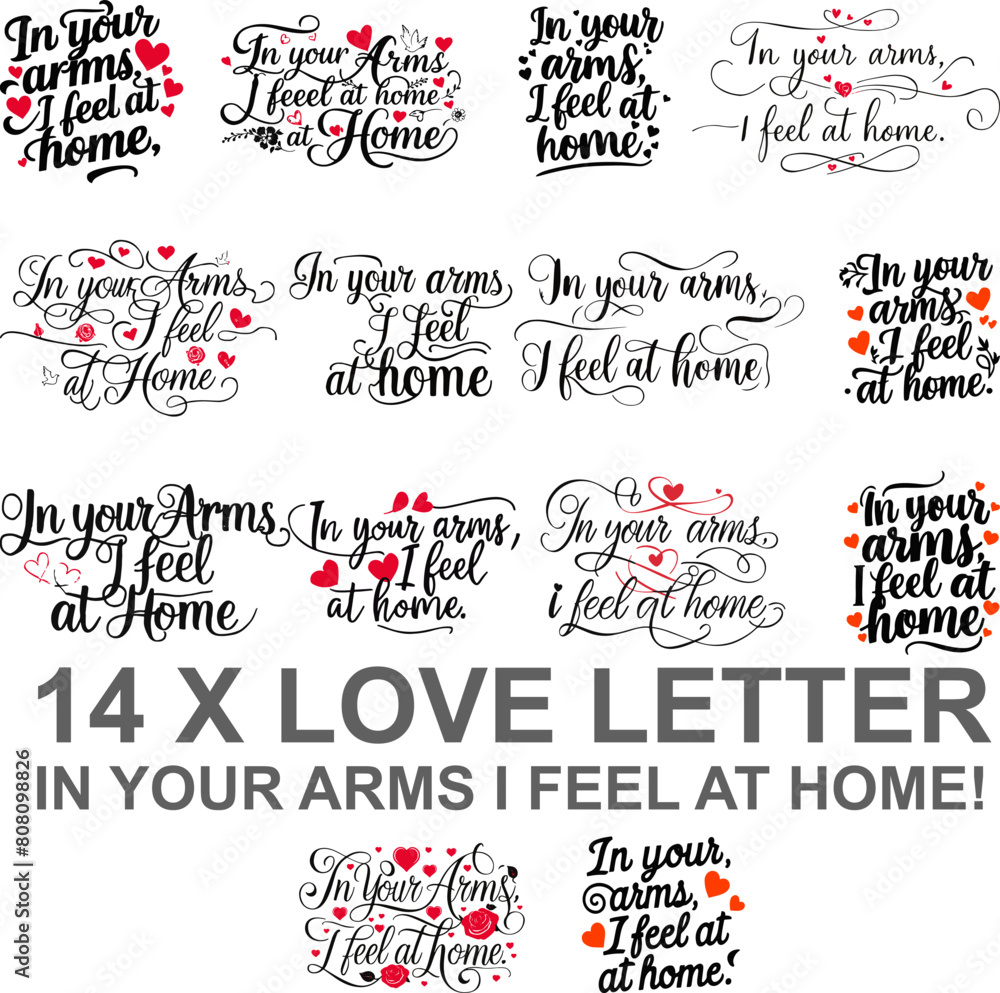 In your
arms,
I feel at
home,
In your Arms
I feeel at home
at Home
In your
arms,
I feel at
home.
In your arms,
I feel at home.
In your Arms,
I feel
at Home
In your arms,
I feel
at home
In your arms,
I feel at home
In your
arms,
I feel
at home.
In your Arms,
I feel
at Home
In your arms,
I feel
at home.
In your arms,
i feel at home,
In your
arms,
I feel at
home
14 X LOVE LETTER
IN YOUR ARMS I FEEL AT HOME!
In Your Arms,
I feel at home.
In your,
arms,
I feel at
at home.
Adobe Stock | #808098826